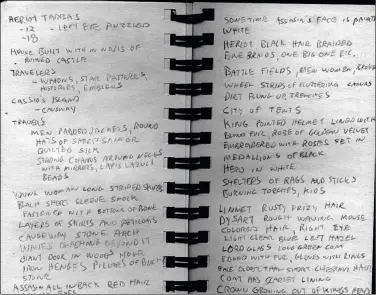 HERIOT TADIAS
-12 - LEFT EYE PUZZLED
-18
HOUSE BUILT WITHIN WALLS OF
RUINED CASTLE
TRAVELERS
- WAGONS, STAR PATTERNS,
HISTORIES, EMBLEMS
CASSIO'S ISLAND
- CAUSEWAY
TRAVELERS
MEN PADDED JACKETS, ROUND
HATS OF
QUILTED SILK
STRONG CHAINS AROUND NECKS
WITH MIRRORS, LAPIS LAZULI
BEADS
YOUNG WOMAN LONG STRIPED SKIRTS
BLACK SHORT SLEEVE SHOCK
FASTENED WITH BUTTONS OF BONE
LAYERS OF SKIRTS AND PETTICOATS
CAUSEWAY STONE ARCH
BEYOND IT
GIANT DOOR IN WOODEN
IRON HINGES PILLARS OF BLACK
STONE
ASSASSIN ALL IN BLACK RED HAIR
SOMETIME ASSASSIN'S FACE IS PAINTED
WHITE
HERIOT BLACK HAIR BRAIDED
FINE BRAIDS, ONE BIG ONE ETC.
BATTLE FIELDS, DEAD WOMEN,
WHEEL STRIPS OF FLUTTERING CANVAS
DIRT FLUNG UP, TRENCHES
CITY OF TENTS
KING POINTED HELMET LINED WITH
BLOND FUR, ROBE OF GOLDEN VELVET
EMBROIDERED WITH ROSES SET IN
MEDALLIONS OF BLACK
HERO IN WHITE
SHELTERS OF RAGS AND STICKS
BURNING TORCHES, KIDS
LINNET RUSTY FRIZZY HAIR
DYSART ROUGH WAVING MOUSE
COLORED HAIR, RIGHT EYE
LIGHT CLEAR BLUE LEFT HAZEL
LORD GLASS LONG GREEN COAT
EDGED WITH FUR, GLOVES WITH RINGS
COAT HAS SCARLET LINING
CROWN GROWING OUT OF KINGS HEAD